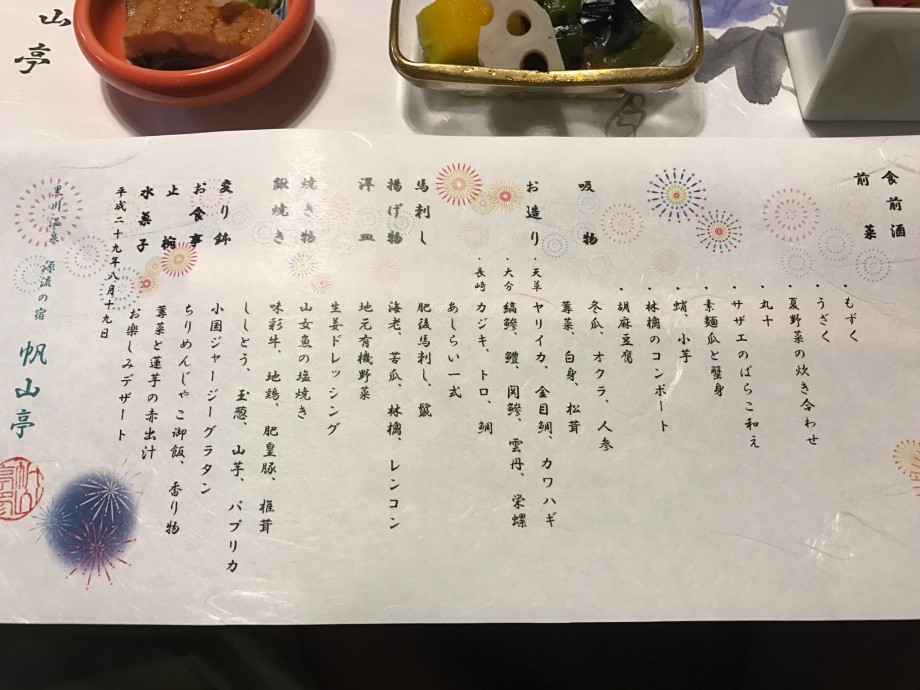 山亭
食前酒
前菜
・もずく
・うざく
・夏野菜の炊き合わせ
・丸十
・サザエのばらこ和え
・素麺瓜と蟹身
・蛸、小芋
・林檎のコンポート
・胡麻豆腐
吸物
冬瓜、オクラ、人参
蓴菜、白身、松茸
お造り
・天草 ヤリイカ、金目鯛、カワハギ
・大分 縞鯵、鱧、関鯵、雲丹、栄螺
・長崎 カジキ、トロ、鯛
あしらい一式
馬刺し
肥後馬刺し、鬣
揚げ物
海老、苦瓜、林檎、レンコン
洋皿
地元有機野菜
生姜ドレッシング
焼き物
山女魚の塩焼き
鍬焼き
味彩牛、地鶏、肥皇豚、椎茸
ししとう、玉葱、山芋、パプリカ
変り鉢
小国ジャージーグラタン
お食事
ちりめんじゃこ御飯、香り物
止椀
蓴菜と蓮芋の赤出汁
水菓子
お楽しみデザート
平成二十九年八月十九日
黒川温泉 源流の宿 帆山亭